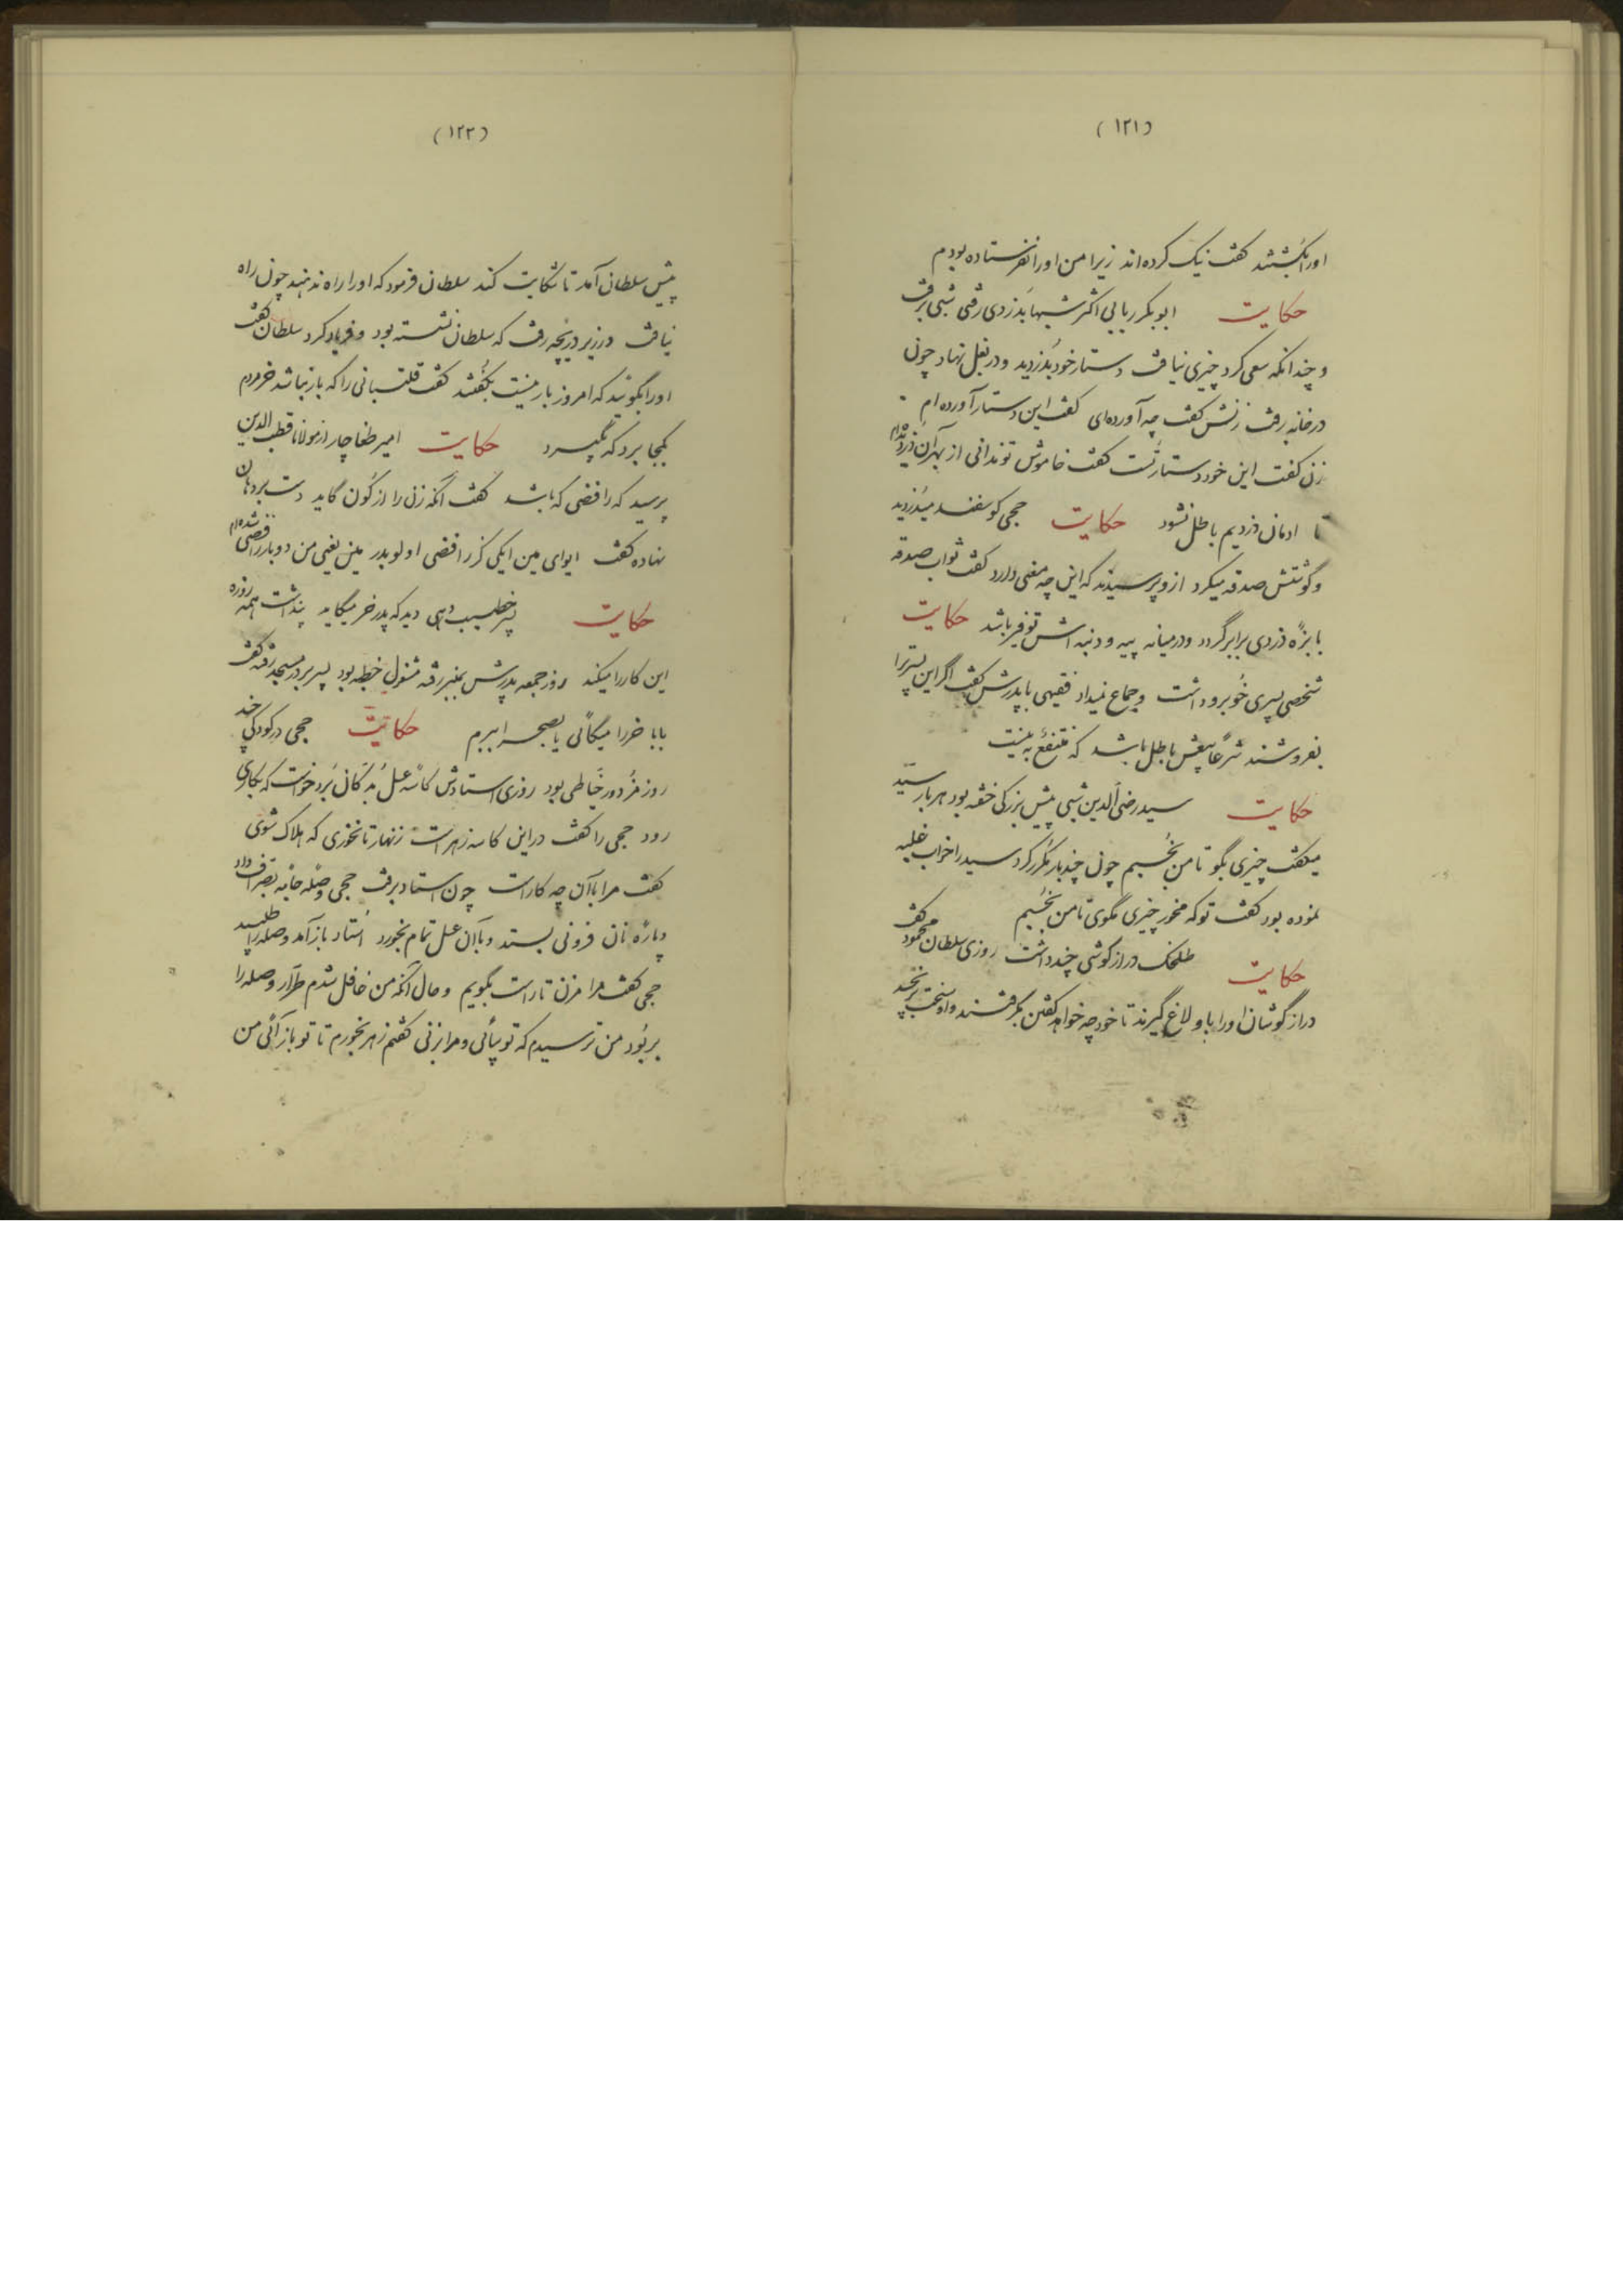 (۱۲۱)
اورا بکشتند گفت نیک کرده‌اند زیرا من اورا نفرستاده بودم
حکایت ابوبکر ربابی اکثر شبها بدزدی رفتی شبی برفت
و چندانکه سعی کرد چیزی نیافت دستار خود بدزدید و در بغل نهاد چون
در خانه رفت زنش گفت چه آورده‌ای گفت این دستار آورده‌ام
زن گفت این خود دستار تست گفت خاموش تو ندانی از بهر آن دزدیده‌ام
تا ادمان دزدیم باطل نشود حکایت حجی گوسفند میدزدید
و گوشتش صدقه میکرد ازو پرسیدند که این چه معنی دارد گفت ثواب صدقه
با بزه دزدی برابر گردد و درمیانه پیه و دنبه اش توفیر باشد حکایت
شخصی پسری خوبرو داشت و جماع نمیداد فقیهی با پدرش گفت اگر این پسر ترا
بفروشند شرعا بیعش باطل باشد که منتفع به نیست
حکایت سید رضی الدین شبی پیش بزرکی خفته بود هر بار سید
میگفت چیزی بگو تا من بخسبم چون چند بار مکرر کرد سید را خواب غلبه
نموده بود گفت تو که مخور چیزی مگوی تا من بخسبم
حکایت طلخک درازگوشی چند داشت روزی سلطان محمود گفت
درازگوشان اورا باولاغ گیرند تا خود چه خواهد گفتن بگرفتند و او سخت برنجید
(۱۲۲)
پیش سلطان آمد تا شکایت کند سلطان فرمود که اورا راه ندهند چون راه
نیافت در زیر دریچه رفت که سلطان نشسته بود و فریاد کرد سلطان گفت
اورا بگوئید که امروز بار نیست بگفتند گفت قلتبانی را که بار نباشد خر مردم
بکجا برد که بگیرد حکایت امیر طغاچار از مولانا قطب الدین
پرسید که رافضی که باشد گفت آنکه زن را از کون گاید دست بر دهان
نهاده گفت ایوای مین ایکی کز رافضی اولوبدر مین یعنی من دو بار رافضی شده‌ام
حکایت پسر خطیب دهی دید که پدر خر میگاید پنداشت همه روزه
این کار را میکند روز جمعه پدرش بمنبر رفته مشغول خطبه بود پسر بر در مسجد رفته گفت
بابا خر را میگائی یا بصحرا برم حکایت حجی در کودکی چند
روز مزدور خیاطی بود روزی استادش کاسه عسل بدکان برد خواست که بکاری
رود حجی را گفت در این کاسه زهر است زنهار تا نخوری که هلاک شوی
گفت مرا با آن چه کار است چون استاد برفت حجی وصله جامه بصراف داد
و پاره نان فزونی بستد و با آن عسل تمام بخورد استاد باز آمد وصله را طلبید
حجی گفت مرا مزن تا راست بگویم و حال آنکه من غافل شدم طرار وصله را
بربود من ترسیدم که تو بیائی و مرا بزنی گفتم زهر بخورم تا تو باز آئی من